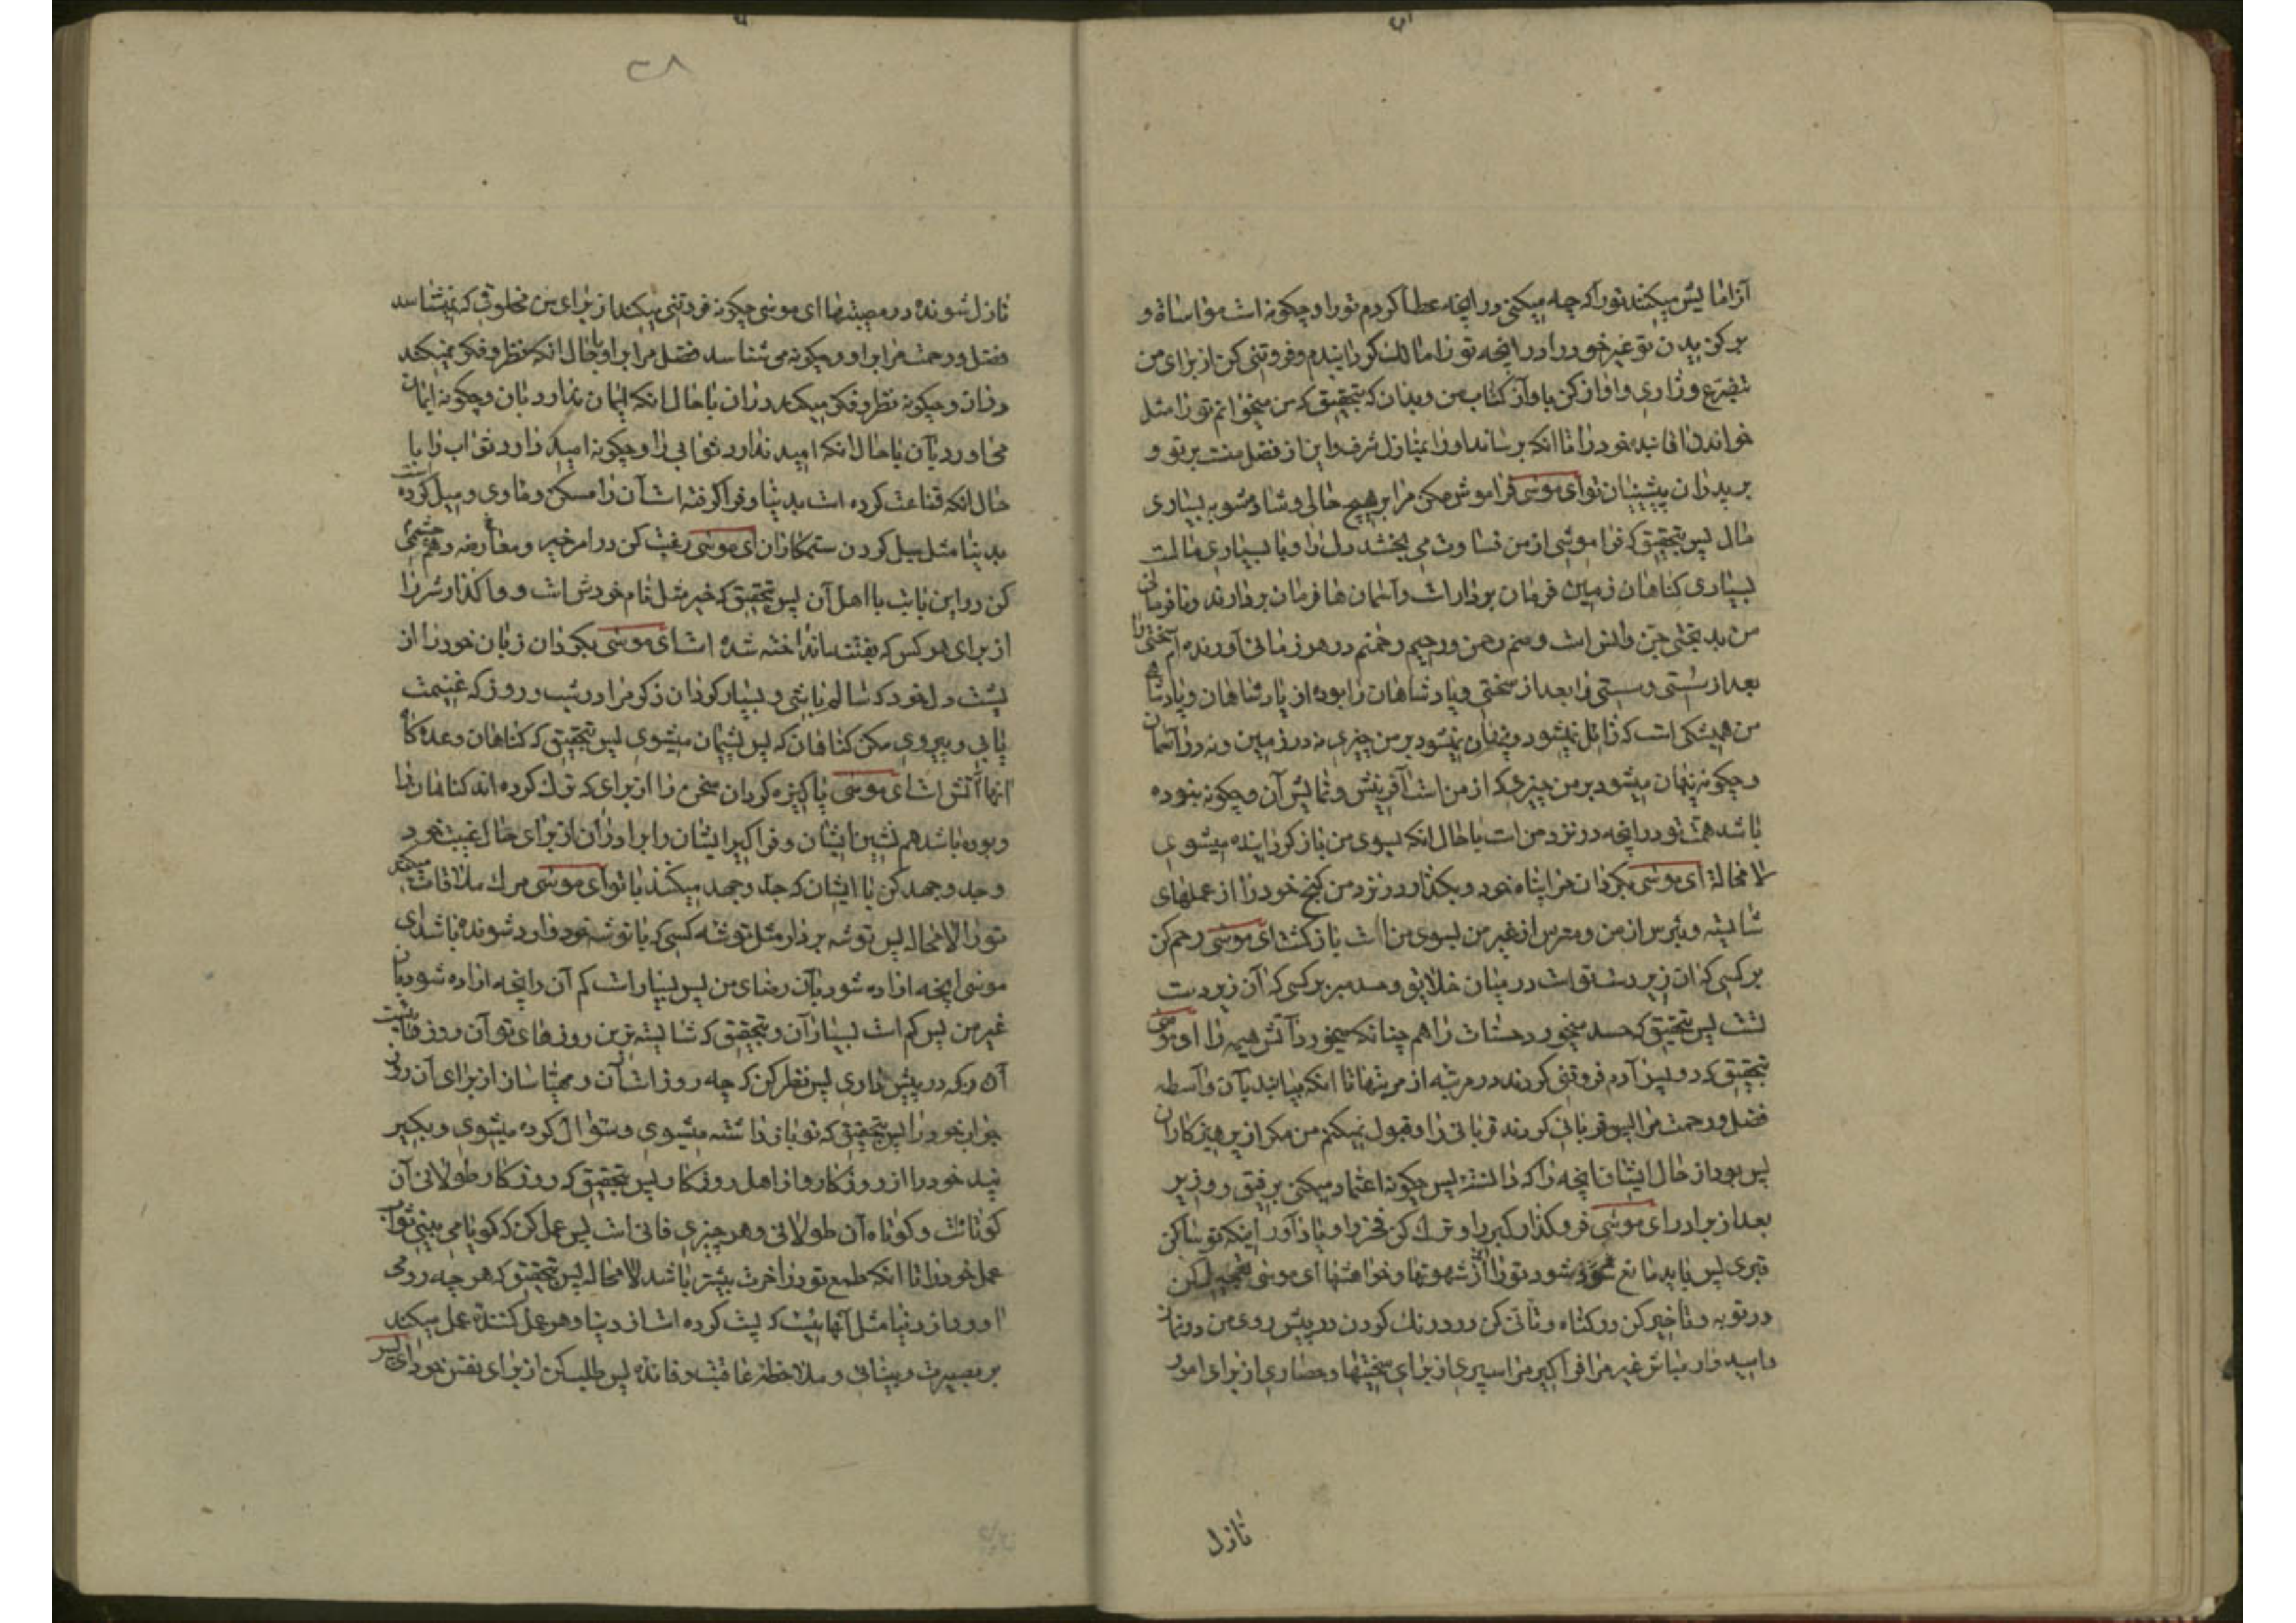 آزمایش میکند تو را که چه میکنی در آنچه عطا کردم تو را و چکونه است مواساة و
پر کن بدن تو غیر خود را در آنچه تو را مالک کردانیدم و فروتنی کن از برای من
تضرع و زاری و اواز کن با واز کتاب من و بدان که بتحقیق که من میخوانم تو را مثل
خواندن اقا بنده خود را تا انکه برساند او را بمنازل شرف و این از فضل منت بر تو و
بر پدران پیشینیان تو ای موسی فراموش مکن مرا بر هیچ حالی و شاد مشو به بسیاری
مال پس بتحقیق که فراموشی از من قساوت می بخشد دل را و با بسیاری مالت
بسیاری کناهان زمین فرمان بردار است و آسمان ها فرمان بردارند و نافرمانی
من بدبختی جن و انس است و منم رحمن و رحیم رحمتم در هر زمانی آورنده ام سختی را
بعد از سستی و سستی را بعد از سختی و پادشاهان را بوده از پادشاهان و پادشاهی
من همیشکی است که زائل نمیشود و پنهان نمیشود بر من چیزی نه در زمین و نه در آسمان
و چکونه پنهان میشود بر من چیزی که از من است آفرینش و نمایش آن و چکونه نبوده
باشد همت تو در آنچه در نزد من است با حال انکه بسوی من باز کردانیده میشوی
لا محالة ای موسی بکردان مرا پناه خود و بکذار در نزد من کنج خود را از عملهای
شایسته و بترس از من و مترس از غیر من بسوی من است باز کشت ای موسی رحم کن
بر کسی که ان زیر دست تو است در میان خلایق و حسد مبر بر کسی که آن زبر دست
تست پس بتحقیق که حسد میخورد حسنات را هم چنانکه میخورد آتش هیمه را ای موسی
بتحقیق که دو پسر آدم فروتنی کردند در مرتبه از مرتبها تا انکه بیابند بآن واسطه
فضل و رحمت مرا پس قربانی کردند قربانی را و قبول نمیکنم من مکر از پرهیزکاران
پس بود از حال ایشان آنچه را که دانستهٔ پس چکونه اعتماد میکنی برفیق و وزیر
بعد از برادر ای موسی فرو کذار کبر را و ترک کن فخر را و یاد آور اینکه تو ساکن
قبری پس باید مانع شود تو را از شهوتها و خواهشها ای موسی تعجیل کن
در توبه و تأخیر کن در کناه و تأنی کن و درنک کردن در پیش روی من در نماز
و امید وار مباش غیر مرا فرا کیر مرا سپری از برای سختیها و حصاری از برای امور
نازل
۳۸
نازل شونده در مصیبتها ای موسی چکونه فروتنی میکند از برای من مخلوقی که نمیشناسد
فضل و رحمت مرا بر او و چکونه می شناسد فضل مرا بر او با حال انکه نظر و فکر نمیکند
در ان و چکونه نظر و فکر میکند در ان با حال انکه ایمان ندارد بان و چکونه ایمان
می اورد بآن با حال انکه امید ندارد ثوابی را و چکونه امید دارد ثواب را با
حال انکه قناعت کرده است بدنیا و فرا کرفته است آن را مسکن و ماوی و میل کرده است
بدنیا مثل میل کردن ستمکاران ای موسی رغبت کن در امر خیر و معارضه و هم چشمی
کن در این بابت با اهل آن پس بتحقیق که خیر مثل نام خودش است و واکذار شر را
از برای هر کس که بفتنه انداخته شده است ای موسی بکردان زبان خود را از
پشت دل خود که سالم باشی و بسیار کردان ذکر مرا در شب و روز که غنیمت
یابی و پیروی مکن کناهان که پس پشیمان میشوی پس بتحقیق که کناهان وعده کاه
انها آتش است ای موسی پاکیزه کردان سخن را از برای که ترک کرده اند کناهان را
و بوده باشد هم نشین ایشان و فرا کیر ایشان را برادران از برای حال غیبت خود
و جد و جهد کن با ایشان که جد و جهد میکنند با تو ای موسی مرک ملاقات میکند
تو را لا محاله پس توشه بردار مثل توشه کسی که با توشه خود وارد شونده باشد ای
موسی آنچه اراده شود بآن رضای من پس بسیار است کم آن و آنچه اراده شود بان
غیر من پس کم است بسیار آن و بتحقیق که شایسته ترین روزهای تو آن روز قیامت
آن که در پیش داری پس نظر کن که چه روز است آن و مهیا ساز از برای آن روز
جواب خود را پس بتحقیق که تو باز داشته میشوی و سئوال کرده میشوی و بکیر
پند خود را از روزکار و از اهل روزکار پس بتحقیق که روزکار طولانی آن
کوتاه است و کوتاه آن طولانی و هر چیزی فانی است پس عمل کن که کویا می بینی ثواب
عمل خود را تا انکه طمع تو در آخرت بیشتر باشد لا محاله پس بتحقیق که هر چه رو می
اورد از دنیا مثل آنها نیست که پشت کرده است از دنیا و هر عمل کننده عمل میکند
بر بصیرت و بینائی و ملاحظه عاقبت و فائده پس طلب کن از برای نفس خود ای پسر